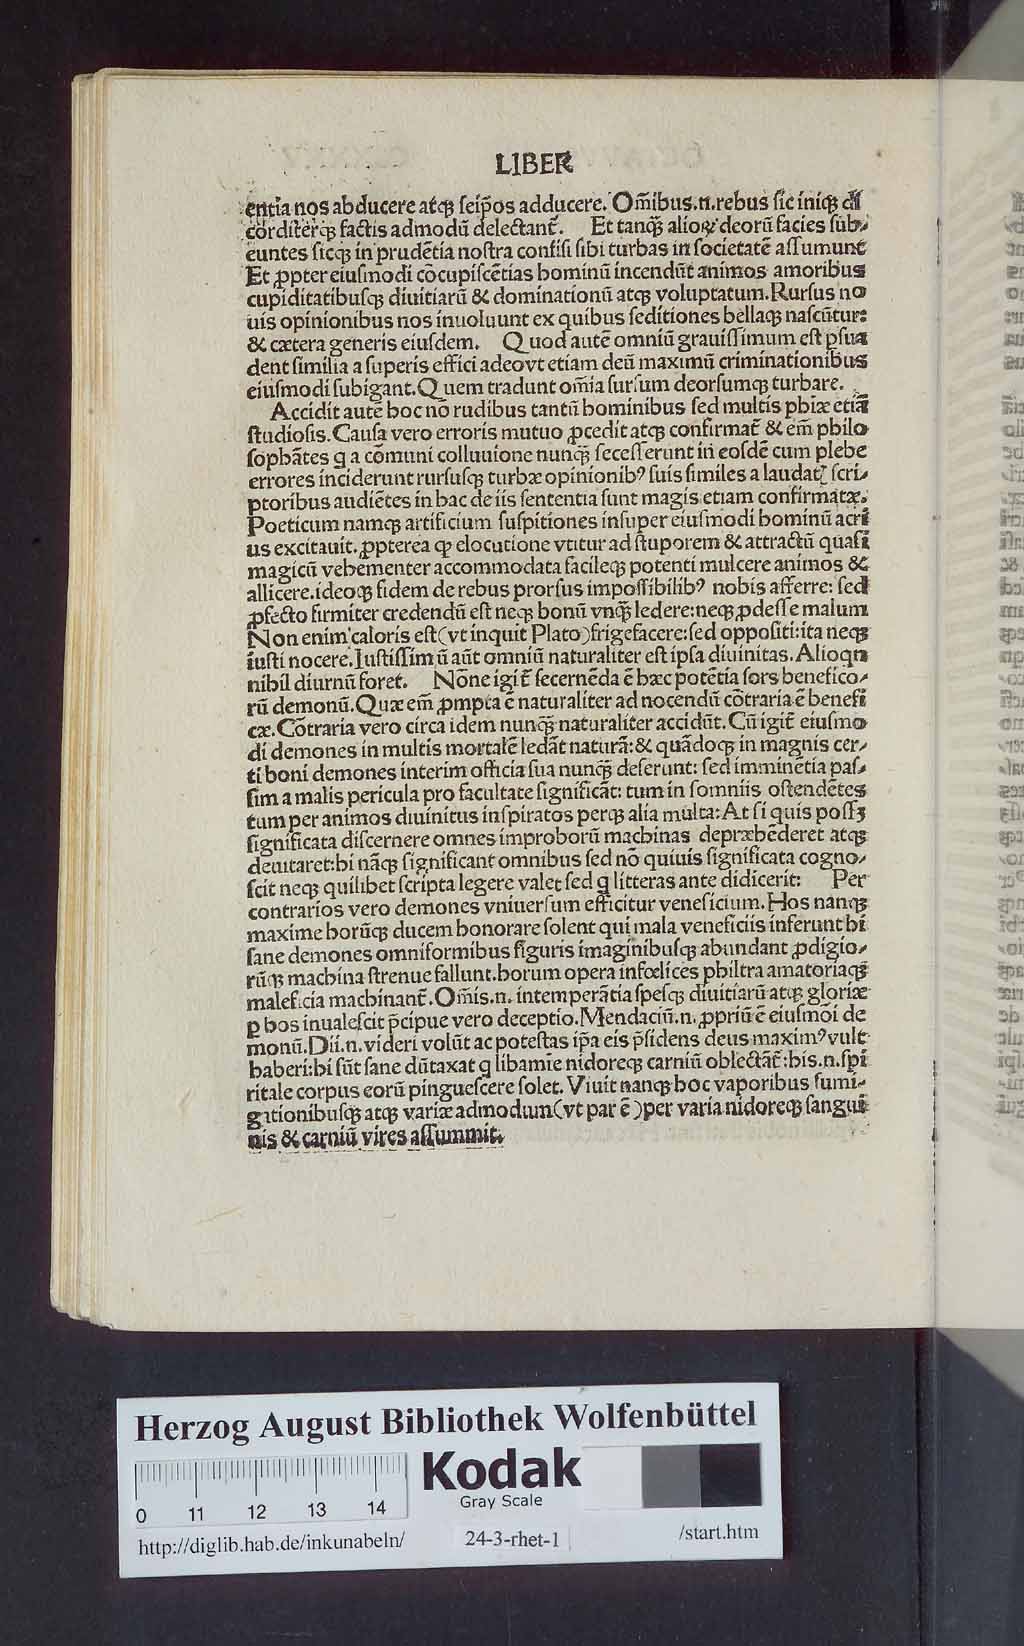 LIBER
entia nos abducere atqꝫ seip̄os adducere. Om̄ibus.n.rebus sic iniqꝫ di
corditerqꝫ factis admodū delectant̄. Et tanqꝫ̄ alioꝝ deorū facies sub-
euntes sicqꝫ in prudētia nostra confisi sibi turbas in societatē assumunt
Et ꝓpter eiusmodi cōcupiscētias hominū incendūt animos amoribus
cupiditatibusqꝫ diuitiarū & dominationū atqꝫ voluptatum. Rursus no
uis opinionibus nos inuoluunt ex quibus seditiones bellaqꝫ nascūtur:
& cætera generis eiusdem. Quod autē omniū grauissimum est ꝑsua
dent similia a superis effici adeovt etiam deū maximū criminationibus
eiusmodi subigant. Quem tradunt om̄ia sursum deorsumqꝫ turbare.
Accidit autē hoc nō rudibus tantū hominibus sed multis phiæ etiā
studiosis. Causa vero erroris mutuo ꝓcedit atqꝫ confirmat̄ & em̄ philo
sophātes q a cōmuni colluuione nunqꝫ̄ secesserunt in eosdē cum plebe
errores inciderunt rursusqꝫ turbæ opinionibꝰ suis similes a laudatꝭ scri-
ptoribus audiētes in hac de iis sententia sunt magis etiam confirmatæ.
Poeticum namqꝫ artificium suspitiones insuper eiusmodi hominū acri
us excitauit. ꝓpterea ꝙ elocutione vtitur ad stuporem & attractū quasi
magicū vehementer accommodata facileqꝫ potenti mulcere animos &
allicere.ideoqꝫ fidem de rebus prorsus impossibilibꝰ nobis afferre: sed
ꝓfecto firmiter credendū est neqꝫ bonū vnqꝫ̄ ledere:neqꝫ ꝓdesse malum
Non enim caloris est(vt inquit Plato)frigefacere:sed oppositi:ita neqꝫ
iusti nocere. Iustissimū aūt omniū naturaliter est ipsa diuinitas. Alioqn
nihil diurnū foret. Nōne igit̄ secernēda ē hæc potētia sors benefico-
rū demonū. Quæ em̄ ꝓmpta ē naturaliter ad nocendū cōtraria ē benefi
cæ. Cōtraria vero circa idem nunqꝫ̄ naturaliter accidūt. Cū igit̄ eiusmo
di demones in multis mortalē ledāt naturā: & quādoqꝫ in magnis cer-
ti boni demones interim officia sua nunqꝫ̄ deserunt: sed imminētia pas-
sim a malis pericula pro facultate significāt: tum in somniis ostendētes
tum per animos diuinitus inspiratos perqꝫ alia multa: At si quis possꝫ
significata discernere omnes improborū machinas depræhēderet atqꝫ
deuitaret:hi nāqꝫ significant omnibus sed nō quiuis significata cogno-
scit neqꝫ quilibet scripta legere valet sed q litteras ante didicerit: Per
contrarios vero demones vniuersum efficitur veneficium. Hos nanqꝫ
maxime horūqꝫ ducem honorare solent qui mala veneficiis inferunt hi
sane demones omniformibus figuris imaginibusqꝫ abundant ꝓdigio-
rūqꝫ machina strenue fallunt. horum opera infœlices philtra amatoriaqꝫ
maleficia machinant̄. Om̄is.n. intemperātia spesqꝫ diuitiarū atqꝫ gloriæ
ꝑ hos inualescit p̄cipue vero deceptio. Mendaciū.n. ꝓpriū ē eiusmōi de
monū. Dii.n. videri volūt ac potestas ip̄a eis p̄sidens deus maximꝰ vult
haberi: hi sūt sane dūtaxat q libamīe nidoreqꝫ carniū oblectāt̄: his.n.spi
ritale corpus eorū pinguescere solet. Viuit nanqꝫ hoc vaporibus sumi-
gationibusqꝫ atqꝫ variæ admodum(vt par ē)per varia nidoreqꝫ sangui
nis & carniū vires assummit.
Herzog August Bibliothek Wolfenbüttel
Kodak
Gray Scale
0 11 12 13 14
http://diglib.hab.de/inkunabeln/ 24-3-rhet-1 /start.htm